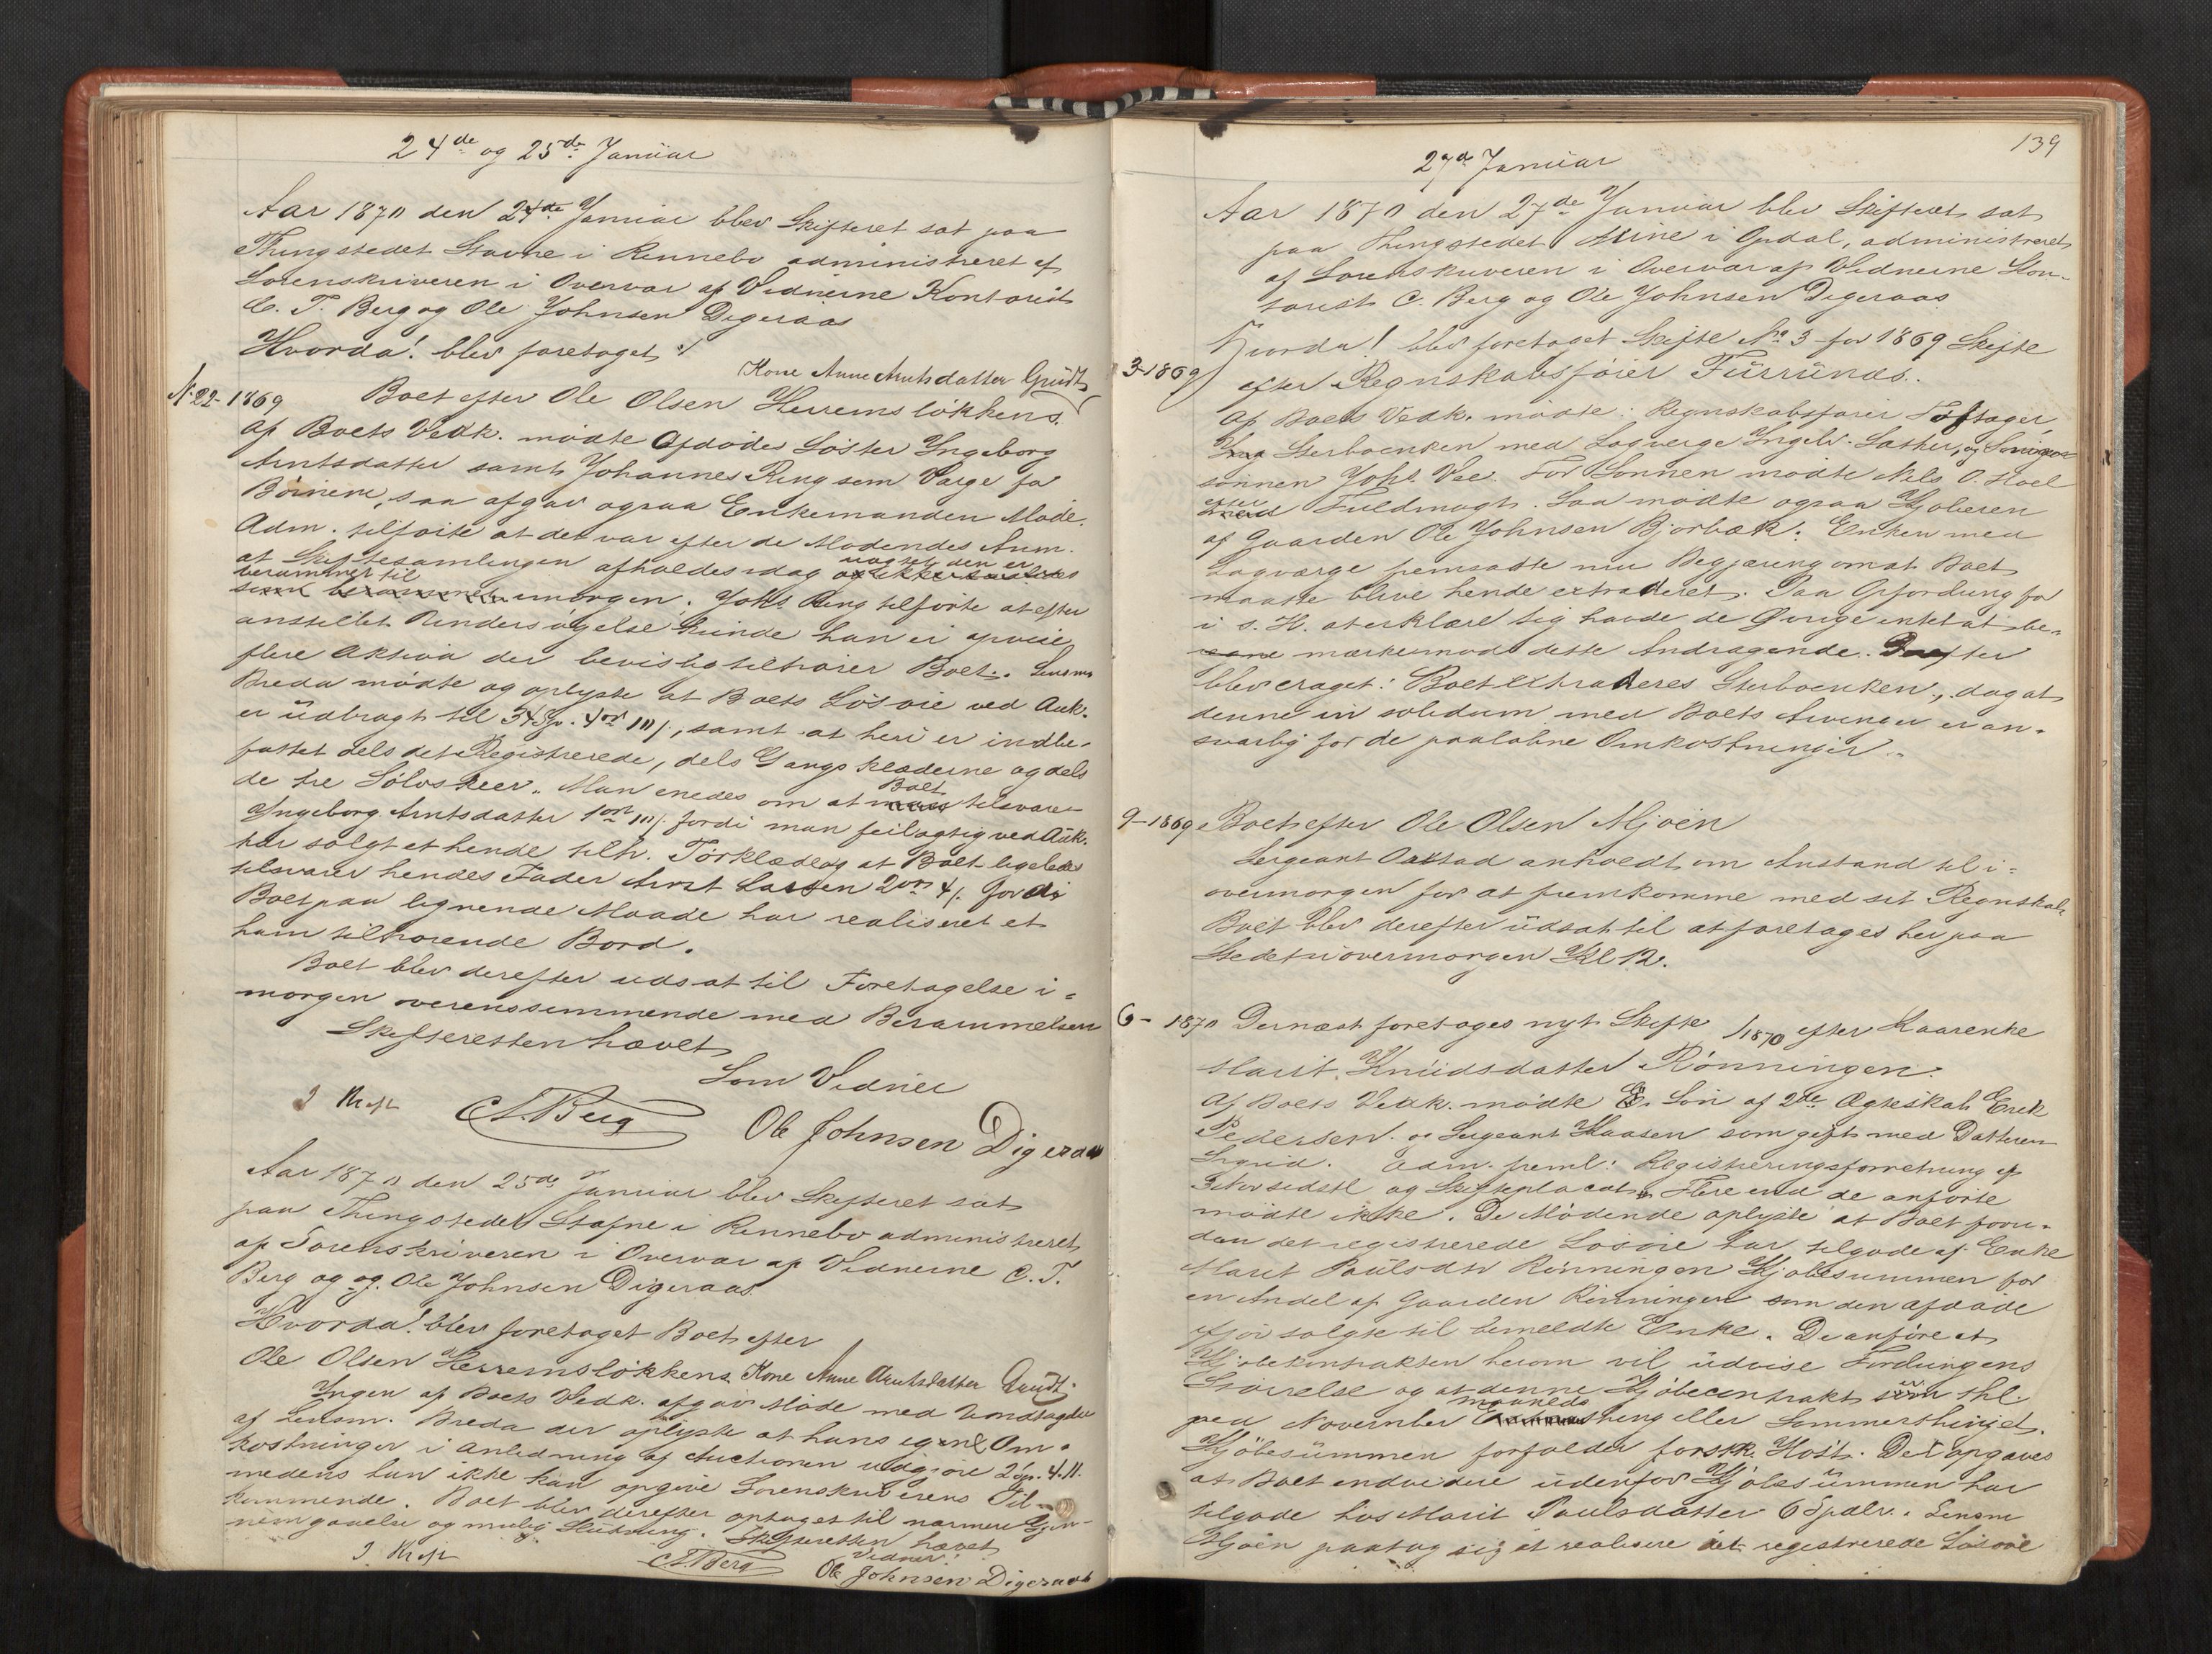 24de og 25de Januar
Aar 1870 den 24de Januar blev Skifteret sat paa
Thingstedet Stavne i Rennebo administreret af
Sorenskriveren i Overvær af Vidnerne Kontorist
C. T. Berg og Ole Johnsen Digeraas
Hvorda! blev foretaget
Kone Anne Arntsdatter Grüdt
N. 22-1869 Boet efter Ole Olsen Herremsløkkens
Af Boets Vedk. mødte Afdødes Søster Ingeborg
Arntsdatter samt Johannes Ring som Værge for
Børnene, saa afgav ogsaa Enkemanden Møde.
Adm. tilførte at det var efter de Mødendes Anm.
at Skiftesamlingen afholdes idag uagtet den er
berammet til imorgen. Johs Ring tilførte at efter
anstillet Undersøgelse kunde han ei opvise
flere Aktiva der bevislig tilhører Boet. Lensm
Breda mødte og oplyste at Boets Løsøre ved Auk.
er udbragt til 34 Sp. 4 ort 11 s, samt at heri er indbe-
fattet dels det Registrerede, dels Gangklæderne og dels
de tre Sølvskeer. Man enedes om at Boet tilsvarer
Ingeborg Arntsdatter 1 ort fordi man feilagtig ved Auk.
har solgt et hende tilh. Tørklæde og at Boet ligeledes
tilsvarer hendes Fader Arnt Larsen 2 ort 4 s. fordi
Boet paa lignende Maade har realiseret et
ham tilhørende Bord.
Boet blev derefter udsat til Foretagelse i-
morgen overensstemmende med Berammelsen
Skifteretten hævet
Som Vidner
C. T. Berg Ole Johnsen Digeraas
Aar 1870 den 25de Januar blev Skifteret sat
paa Thingstedet Stafne i Rennebo administreret
af Sorenskriveren i Overvær af Vidnerne C. T.
Berg og og Ole Johnsen Digeraas
Hvorda! blev foretaget Boet efter
Ole Olsen Herremsløkkens Kone Anne Arntsdatter Grüdt
Ingen af Boets Vedk. afgav Møde med Undtagelse
af Lensm. Breda der oplyste at hans egne Om-
kostninger i Anledning af Auctionen udgjøre 2 Sp. 4. 11.
medens han ikke kan opgive Sorenskriverens Til-
kommende. Boet blev derefter optaget til nærmere Gjen-
nemgaaelse og mulig Slutning. Skifteretten hævet
Vidner:
C. T. Berg Ole Johnsen Digeraas
139
27d Januar
Aar 1870 den 27de Januar blev Skifteret sat
paa Thingstedet Mine i Opdal, administreret
af Sorenskriveren i Overvær af Vidnerne Kon-
torist C. Berg og Ole Johnsen Digeraas
Hvorda! blev foretaget Skifte No 3 for 1869 Skifte
3-1869 efter Regnskabsfører Furrunds.
Af Boets Vedk. mødte: Regnskabsfører Toftager,
Sterboenken med Lagverge Ingebr. Sæther, og
sønnen Johs Vee. For Sønnen mødte Nils O. Hoel
efter Fuldmagt. Saa mødte ogsaa Kjøberen
af Gaarden Ole Johnsen Bjørbæk. Enken med
Lagværge fremsatte nu Begjæring om at Boet
maatte blive hende extraderet. Paa Opfordring for
i s. H. at erklære sig havde de Øvrige intet at be-
mærke mod dette Andragende. Derefter
blev eraget: Boet extraderes Sterboenken, dog at
denne in solidum med Boets Arvinger er an-
svarlig for de paaløbne Omkostninger.
9-1869 Boet efter Ole Olsen Mjøen
Sergeant anholdt om Anstand til i-
overmorgen for at fremkomme med sit Regnskab,
Boet blev derefter udsat til at foretages her paa
Stedet i overmorgen Kl 12.
6-1870 Dernæst foretages nyt Skifte /1870 efter Kaarenke
Marit Knudsdatter Rønningen.
Af Boets Vedk. mødte E. Søn af 2de Ægteskab Erik
Pedersen og Sergeant Haasen som gift med Datteren
Sigrid. Adm. freml: Registreringsforretning af
sidstl og Skifteplacat. Flere end de anførte
mødte ikke. De Mødende oplyste at Boet foru-
den det registrerede Løsøre har tilgode af Enke
Marit Paulsdtr Rønningen Kjøbesummen for
en Andel af Gaarden Rønningen som den afdøde
ifjor solgte til bemeldte Enke. De anføre at
Kjøbekontrakten herom vil udvise Fordringens
Størrelse og at denne Kjøbecontrakt er thl.
ved November maaneds thing eller Sommerthinget.
Kjøbesummen forfalder førstk. Høst. Det opgaves
at Boet endvidere udenfor Kjøbesummen har
tilgode hos Marit Paulsdatter 6 Spdlr. Lensm
Mjøen paatog sig at realisere det registrerede Løsøre